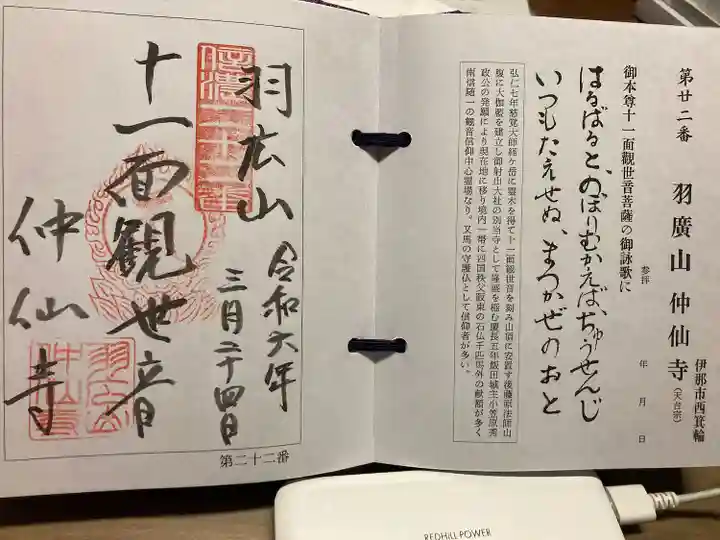 第廿二番 羽廣山 仲仙寺 伊那市西箕輪(天台宗)
参拝 年 月 日
御本尊十一面觀世音菩薩の御詠歌に
はるばると、のぼりむかえば、ちゅうせんじ
いつもたえせぬ、まつかぜのおと
弘仁七年慈覚大師経ヶ岳に霊木を得て十一面観世音を刻み山頂に安置す後藤原法師山
腹に大伽藍を建立し御射山大社の別当寺として隆盛を極む慶長五年飯田城主小笠原秀
政公の発願により現在地に移り境内一帯に四国秩父阪東の石仏千匹馬外の献額が多く
南信随一の観音信仰中心霊場なり。又馬の守護仏として信仰者が多い。
令和六年
三月二十四日
羽広山
十一面観世音
仲仙寺
第二十二番
REDHILL POWER